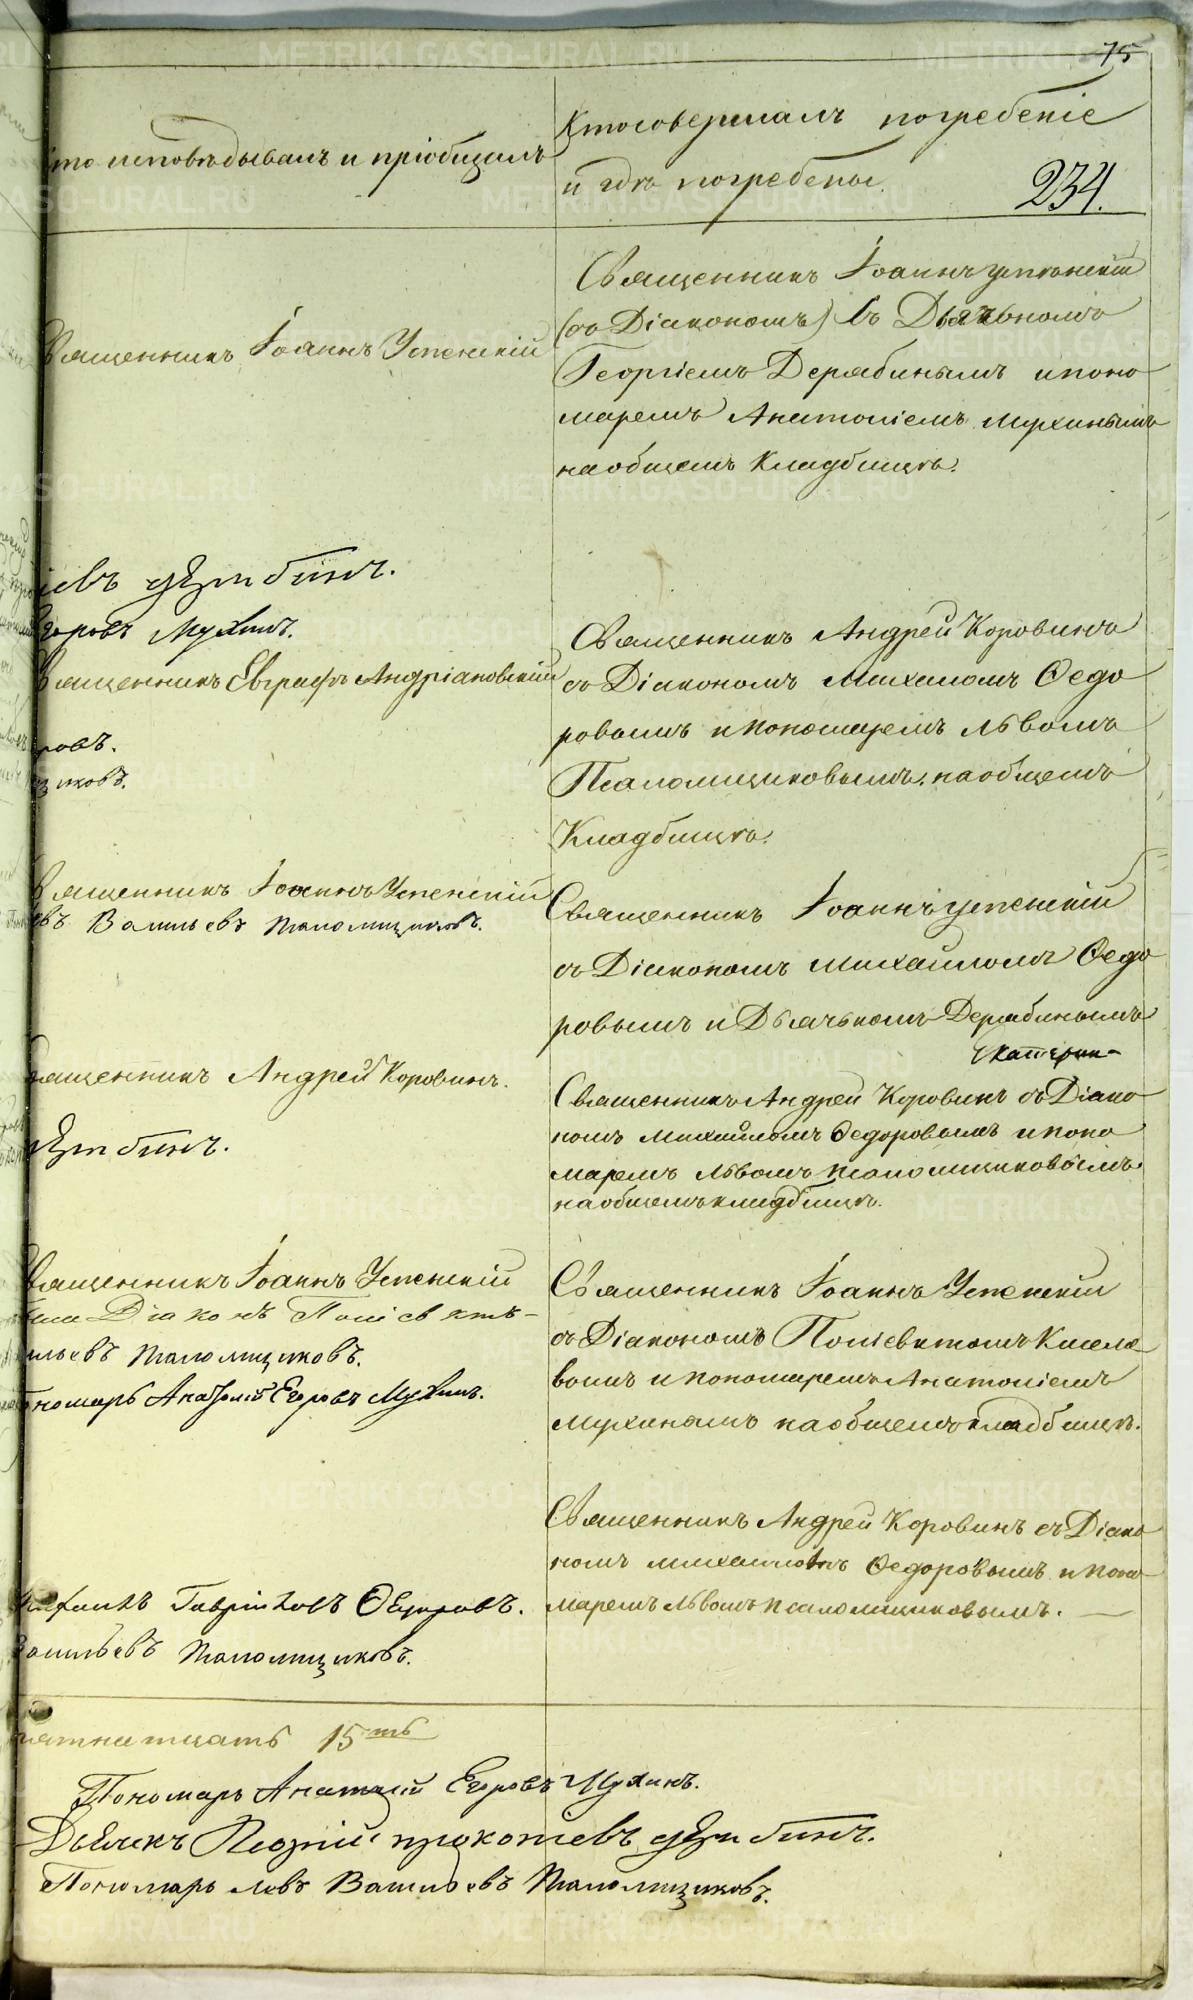 75
Кто исповѣдывалъ и пріобщалъ
Кто совершалъ погребеніе
и гдѣ погребены.
234.
Священникъ Іоаннъ Успенскій
Священникъ Іоаннъ Успенскій
(съ Діакономъ) съ Дьячкомъ
Георгіемъ Дерябинымъ и поно
маремъ Анатоліемъ Мухинымъ
на общемъ Кладбищѣ.
іевъ Дерябинъ.
Егоровъ Мухинъ.
Священникъ Евграфъ Андріановскій
ровъ.
щиковъ.
Священникъ Андрей Коровинъ
съ Діакономъ Михаиломъ Ѳедо
ровымъ и пономаремъ Львомъ
Псаломщиковымъ, на общемъ
Кладбищѣ.
Священникъ Іоаннъ Успенскій
овъ Васильевъ Псаломщиковъ.
Священникъ Іоаннъ Успенскій
съ Діакономъ Михаиломъ Ѳедо
ровымъ и Дьячькомъ Дерябинымъ
Священникъ Андрей Коровинъ.
Дерябинъ.
Священникъ Андрей Коровинъ съ Діако
номъ Михаиломъ Ѳедоровымъ и поно
маремъ Львомъ Псаломщиковымъ
на общемъ кладбищѣ.
Священникъ Іоаннъ Успенскій
Діаконъ Поліевктъ
сильевъ Псаломщиковъ.
ономарь Анатолій Егоровъ Мухинъ.
Священникъ Іоаннъ Успенскій
съ Діакономъ Поліевктомъ Киселе
вымъ и пономаремъ Анатоліемъ
Мухинымъ на общемъ кладбищѣ.
Священникъ Андрей Коровинъ съ Діако
номъ Михаиломъ Ѳедоровымъ и поно
маремъ Львомъ Псаломщиковымъ.
Гавріиловъ Ѳедоровъ.
Васильевъ Псаломщиковъ.
пятнатцать 15ть
Пономарь Анатолій Егоровъ Мухинъ.
Дьячекъ Георгій Прокопіевъ Дерябинъ.
Пономарь Левъ Васильевъ Псаломщиковъ.
METRIKI.GASO-URAL.RU